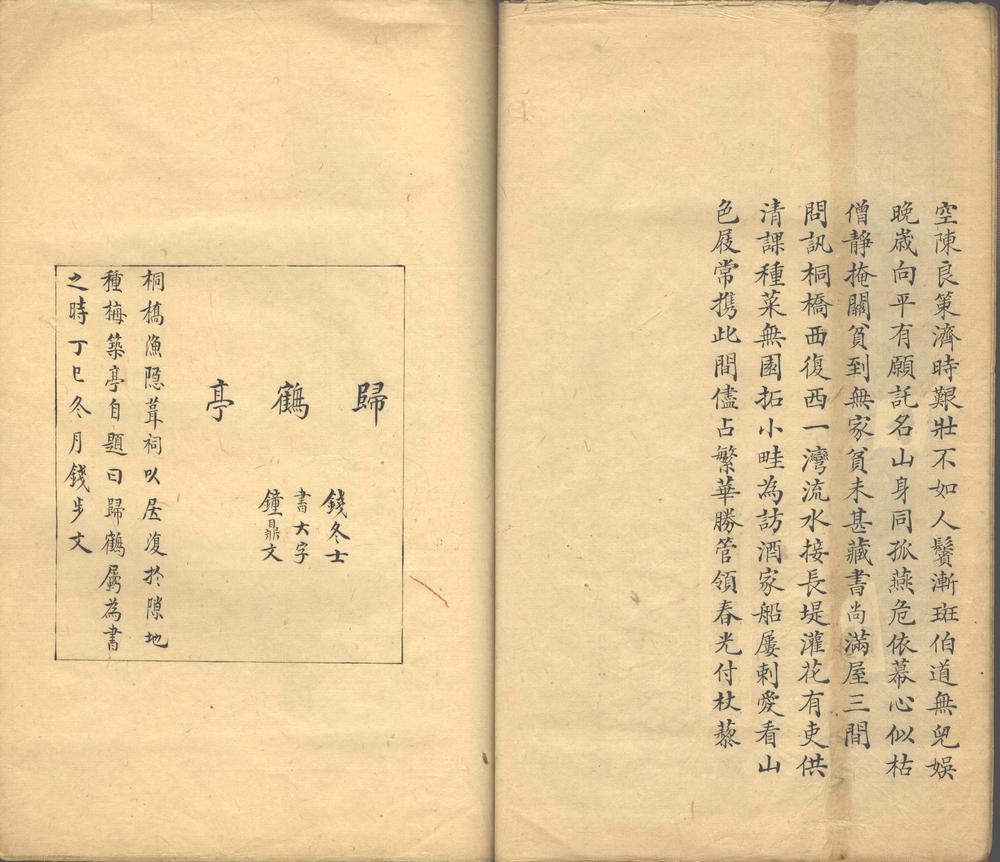 空陳良策濟時艱壯不如人鬢漸斑伯道無兒娛
晚嵗向平有願託名山身同孤燕危依幕心似枯
僧靜掩關貧到無家貧未甚藏書尚滿屋三間
問訊桐橋西復西一灣流水接長堤灌花有吏供
清課種菜無園拓小畦為訪酒家船屢刺愛看山
色屐常携此間儘占繁華勝管領春光付杖藜
歸鶴亭
錢冬士
書大字
鐘鼎文
桐橋漁隱葺祠以居復於隙地
種梅築亭自題曰歸鶴屬為書
之時丁巳冬月錢步文